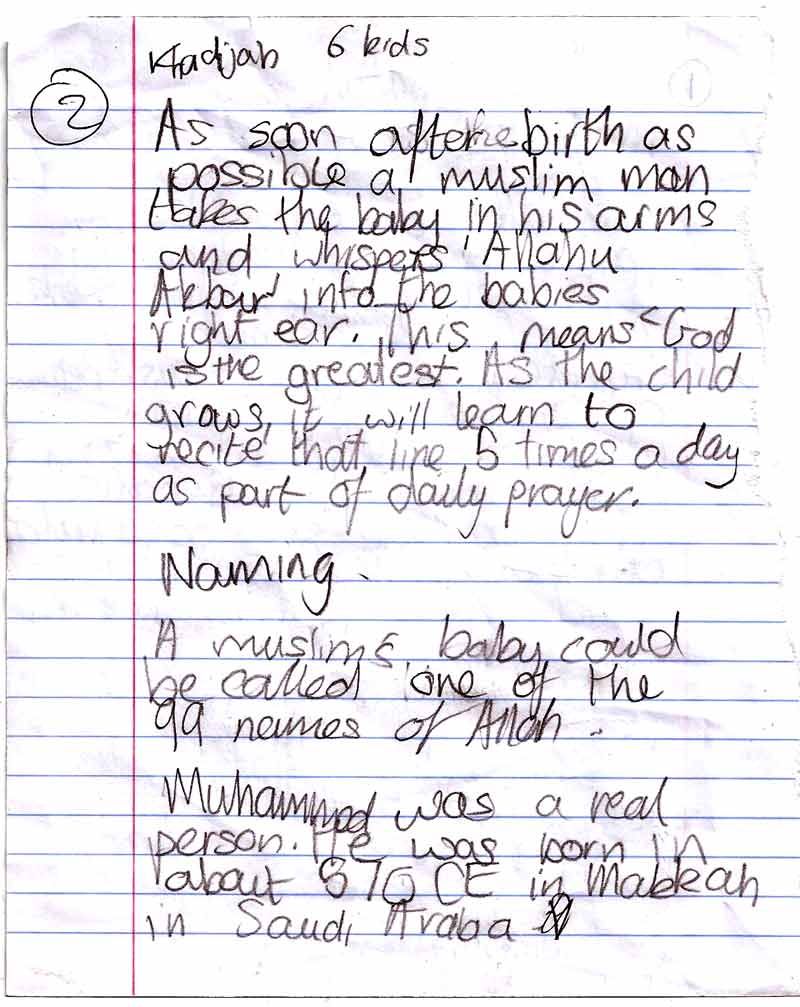 Khadijah 6 kids
2
As soon after the birth as
possible a muslim man
takes the baby in his arms
and whispers 'Allahu
Akbar' into the babies
right ear. This means "God
is the greatest. As the child
grows, it will learn to
recite that line 5 times a day
as part of daily prayer.
Naming.
A muslims baby could
be called one of the
99 names of Allah.
Muhammed was a real
person. He was born in
about 570 CE in Makkah
in Saudi Araba